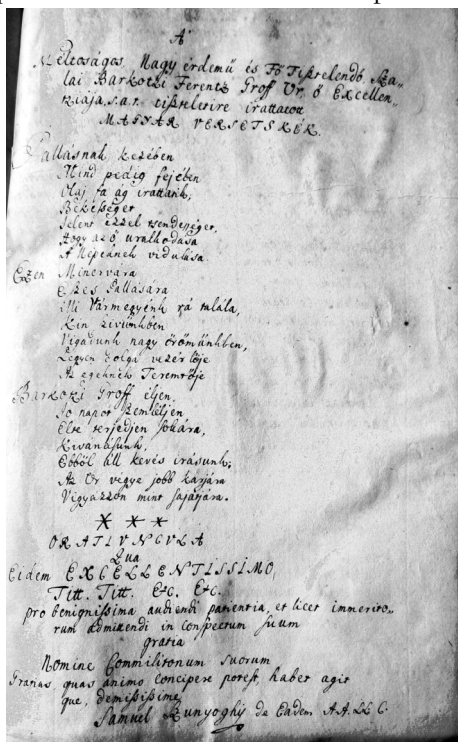 A
Méltoságos, Nagy érdemű és Fő Tisztelendő Sza„
lai Barkotzi Ferentz Groff Ur, ő Excellen„
tziája, s.a.t. tiszteletire irattatott
MAGYAR VERSETSKÉK.
Pallásnak kezében
Mind pedig fejében
Olaj fa ág irattatik,
Békességet
Jelent ezzel tsendességet,
Hogy az ő uralkodása
A Népének vidulása.
Ezen Minervára
Eszes Pallására
Mi Vármegyénk rá talála,
Kin szivünkben
Vigadunk nagy örömünkben,
Legyen dolga vezérlője
Az egeknek Teremtője
Barkotzi Groff éljen,
Jo napot szemléljen,
Élte terjedjen sokára,
Kivánásunk,
Ebből áll kevés irásunk;
Az Ur vegye jobb karjára
Vigyázzon mint sajátjára.
* * *
ORATIUNCULA
Qua
Eidem EXCELLENTISSIMO,
Titt. Titt. Etc. Etc.
pro benignissima audiendi patientia, et licet immerito„
rum admittendi in conspectum suum
gratia
Nomine Commilitonum suorum
Gratias, quas animo concipere potest, habet agit
que, demississime
Samuel Runyoghÿ de Eadem AA. LL. C.